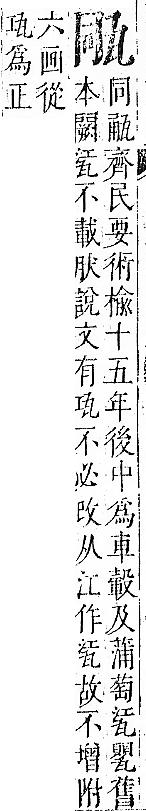 㼧
同齊民要術榆十五年後中爲車轂及蒲萄㼚甖舊
本闕㼚不載肰說文有瓨不必改从江作㼚故不增附
六画從瓨爲正